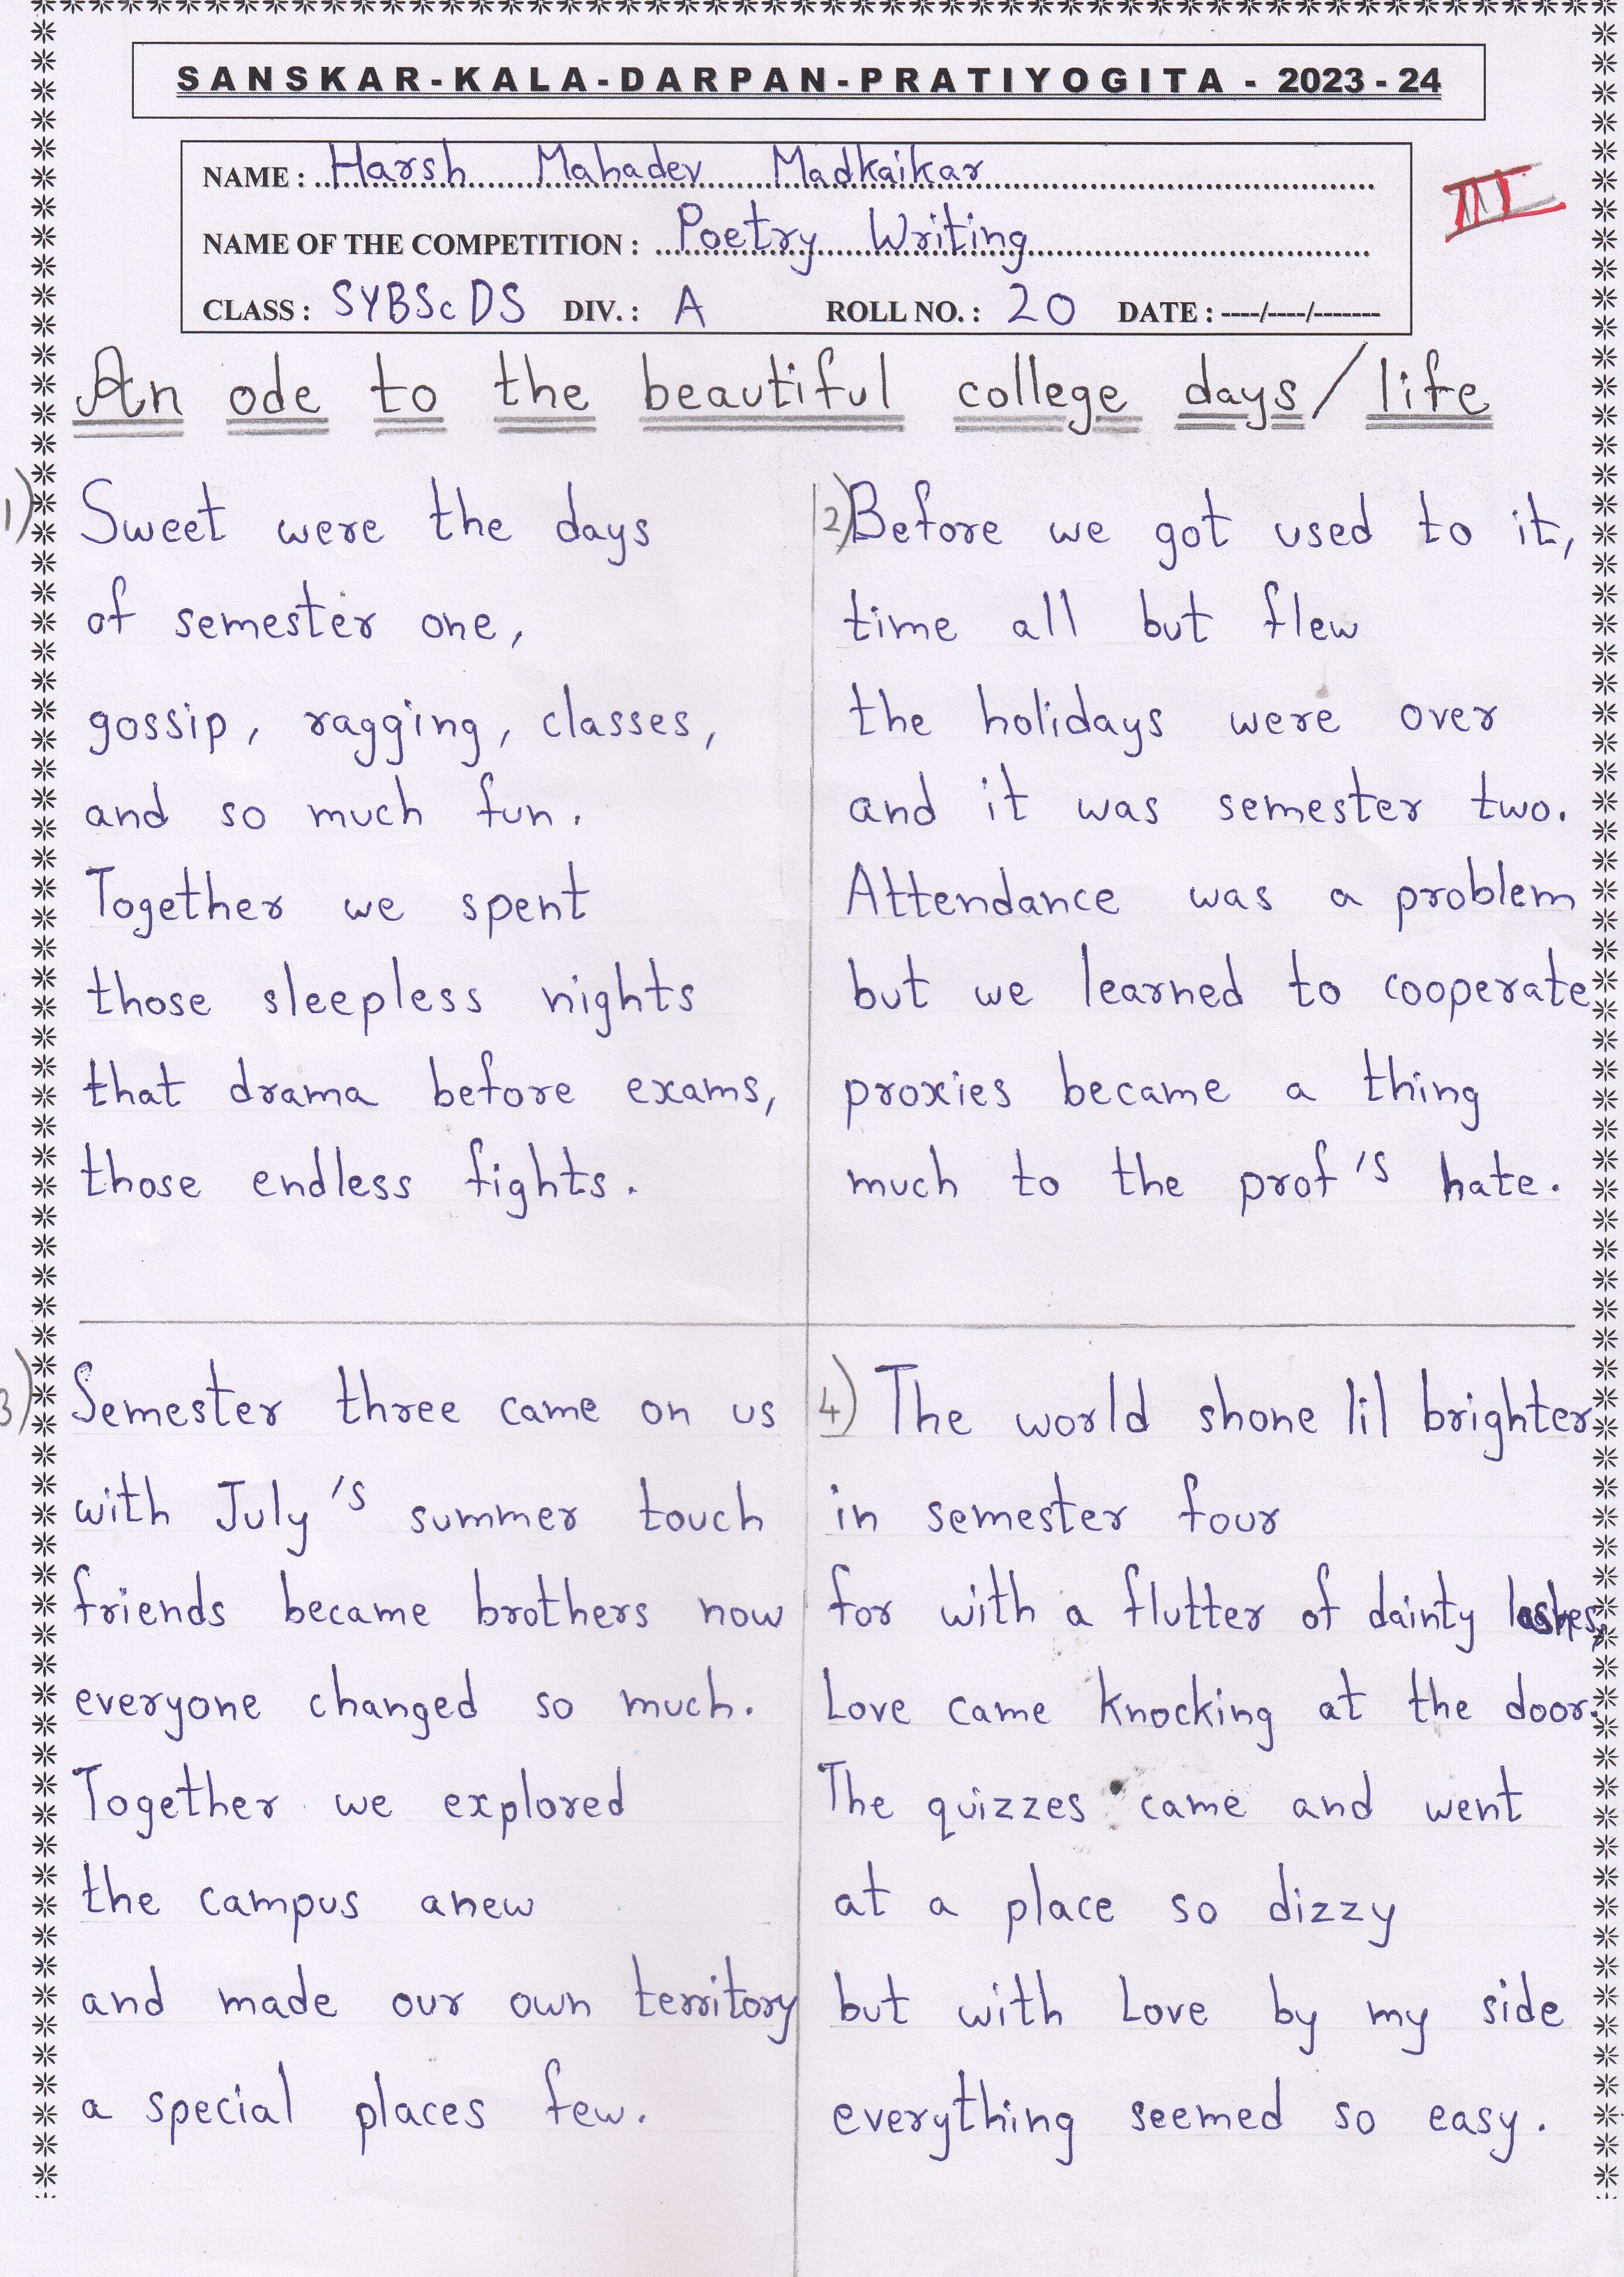 SANSKAR-KALA-DARPAN-PRATIYOGITA - 2023-24
NAME : Harsh Mahadev Madkaikar
III
NAME OF THE COMPETITION : Poetry Writing
CLASS : SYBSc DS DIV. : A ROLL NO. : 20 DATE : ----/----/-------
An ode to the beautiful college days/life
1) Sweet were the days
of semester one,
gossip, ragging, classes,
and so much fun.
Together we spent
those sleepless nights
that drama before exams,
those endless fights.
2) Before we got used to it,
time all but flew
the holidays were over
and it was semester two.
Attendance was a problem
but we learned to cooperate
proxies became a thing
much to the prof's hate.
3) Semester three came on us
with July's summer touch
friends became brothers now
everyone changed so much.
Together we explored
the campus anew
and made our own territory
a special places few.
4) The world shone lil brighter
in semester four
for with a flutter of dainty lashes,
Love came knocking at the door.
The quizzes came and went
at a place so dizzy
but with Love by my side
everything seemed so easy.